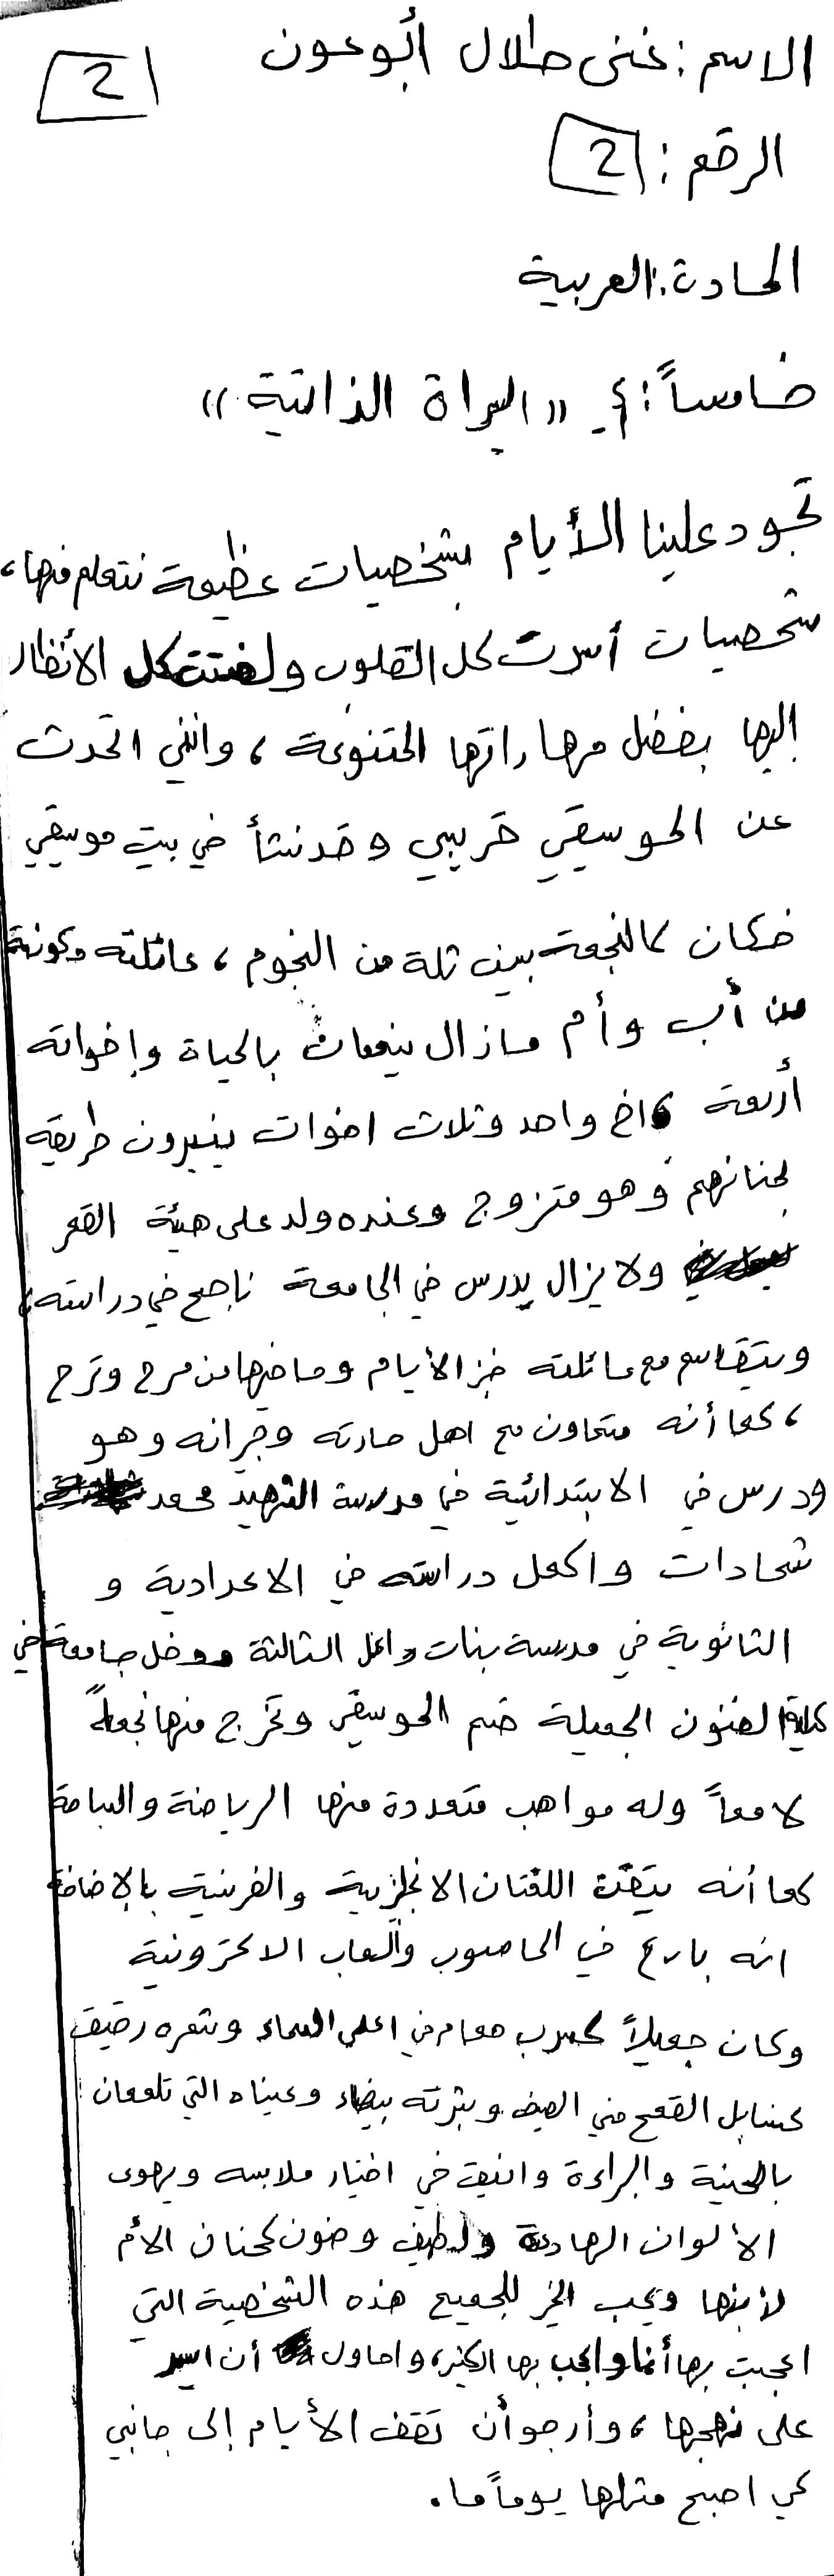 الاسم: غنى طلال أبو عون
2
الرقم: 2
المادة: العربية
خامساً: ٤ـ «السيرة الذاتية»
تجود علينا الأيام بشخصيات عظيمة نتعلم منها،
شخصيات أسرت كل القلوب ولفتت كل الأنظار
إليها بفضل مهاراتها المتنوعة، وانني اتحدث
عن الموسيقي قريبي وقد نشأ في بيت موسيقي
فكان كالنجمة بين ثلة من النجوم، عائلته مكونة
من أب وأم مازال ينعمان بالحياة وإخواته
أربعة اخ واحد وثلاث اخوات ينيرون طريقه
بحنانهم وهو متزوج وعنده ولد على هيئة القمر
ولا يزال يدرس في الجامعة ناجح في دراسته،
ويتقاسم مع عائلته خبز الأيام وما فيها من مرح وترح
، كما أنه متعاون مع اهل حارته وجيرانه وهو
ودرس في الابتدائية في مدرسة الشهيد محمد
شحادات واكمل دراسته في الاعدادية و
الثانوية في مدرسة بنات داعل الثالثة ودخل جامعة في
كلية الفنون الجميلة قسم الموسيقى وتخرج منها نجماً
لامعاً وله مواهب متعددة منها الرياضة والسباحة
كما أنه يتقن اللغتان الانجليزية والفرنسية بالإضافة
انه بارع في الحاسوب وألعاب الالكترونية
وكان جميلاً كسرب حمام في اعلى السماء وشعره رقيق
كسنابل القمح في الصيف وبشرته بيضاء وعيناه التي تلمعان
بالحنية والبراءة وانيق في اختيار ملابسه ويهوى
الألوان الهادئة ولطيف وحنون كحنان الأم
لأبنها ويحب الخير للجميع هذه الشخصية التي
اعجبت بها أنا واعجب بها الكثير، واحاول أن اسير
على نهجها، وأرجو أن تقف الأيام إلى جانبي
كي اصبح مثلها يوماً ما.